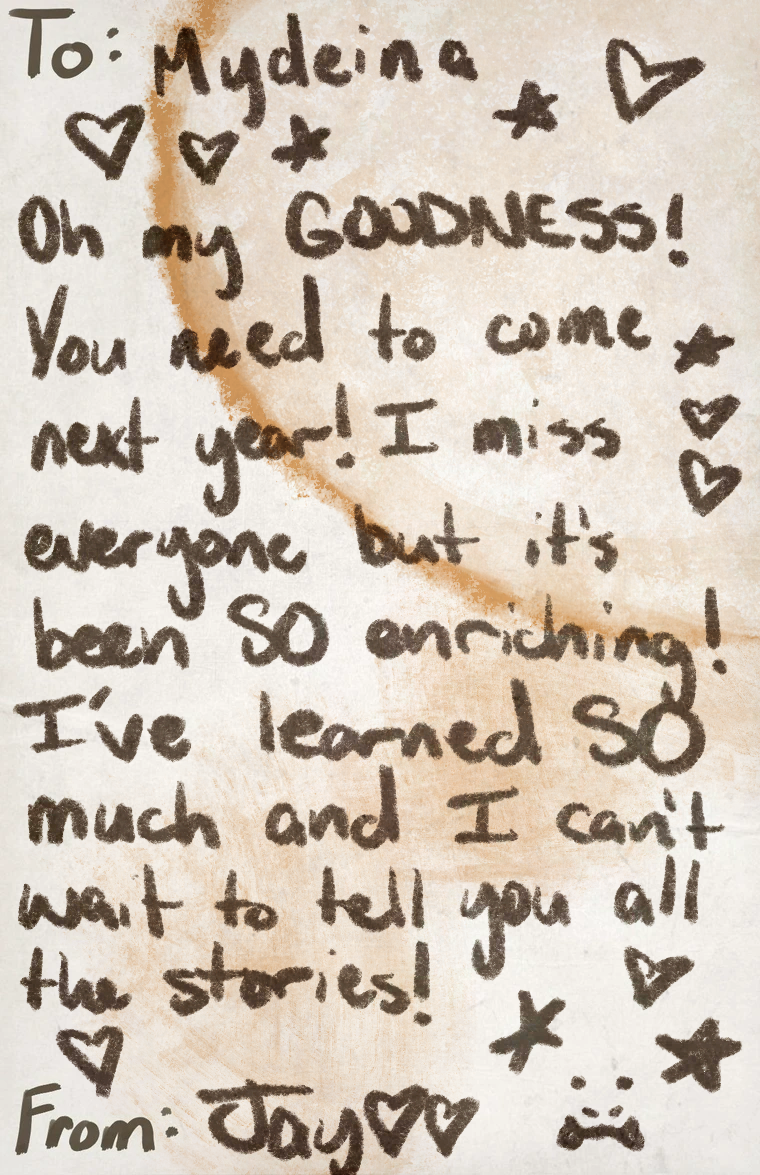 To: Mydeina
Oh my GOODNESS!
You need to come
next year! I miss
everyone but it's
been SO enriching!
I've learned SO
much and I can't
wait to tell you all
the stories!
From: Jay